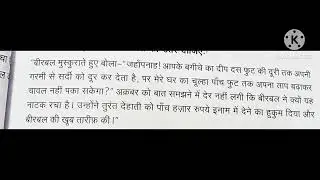 "बीरबल मुस्कुराते हुए बोला–"जहाँपनाह! आपके बगीचे का दीप दस फुट की दूरी तक अपनी
गरमी से सर्दी को दूर कर देता है, पर मेरे घर का चूल्हा पाँच फुट तक अपना ताप बढ़ाकर
चावल नहीं पका सकेगा?" अकबर को बात समझने में देर नहीं लगी कि बीरबल ने क्यों यह
नाटक रचा है। उन्होंने तुरंत देहाती को पाँच हज़ार रुपये इनाम में देने का हुकुम दिया और
बीरबल की खूब तारीफ़ की।"